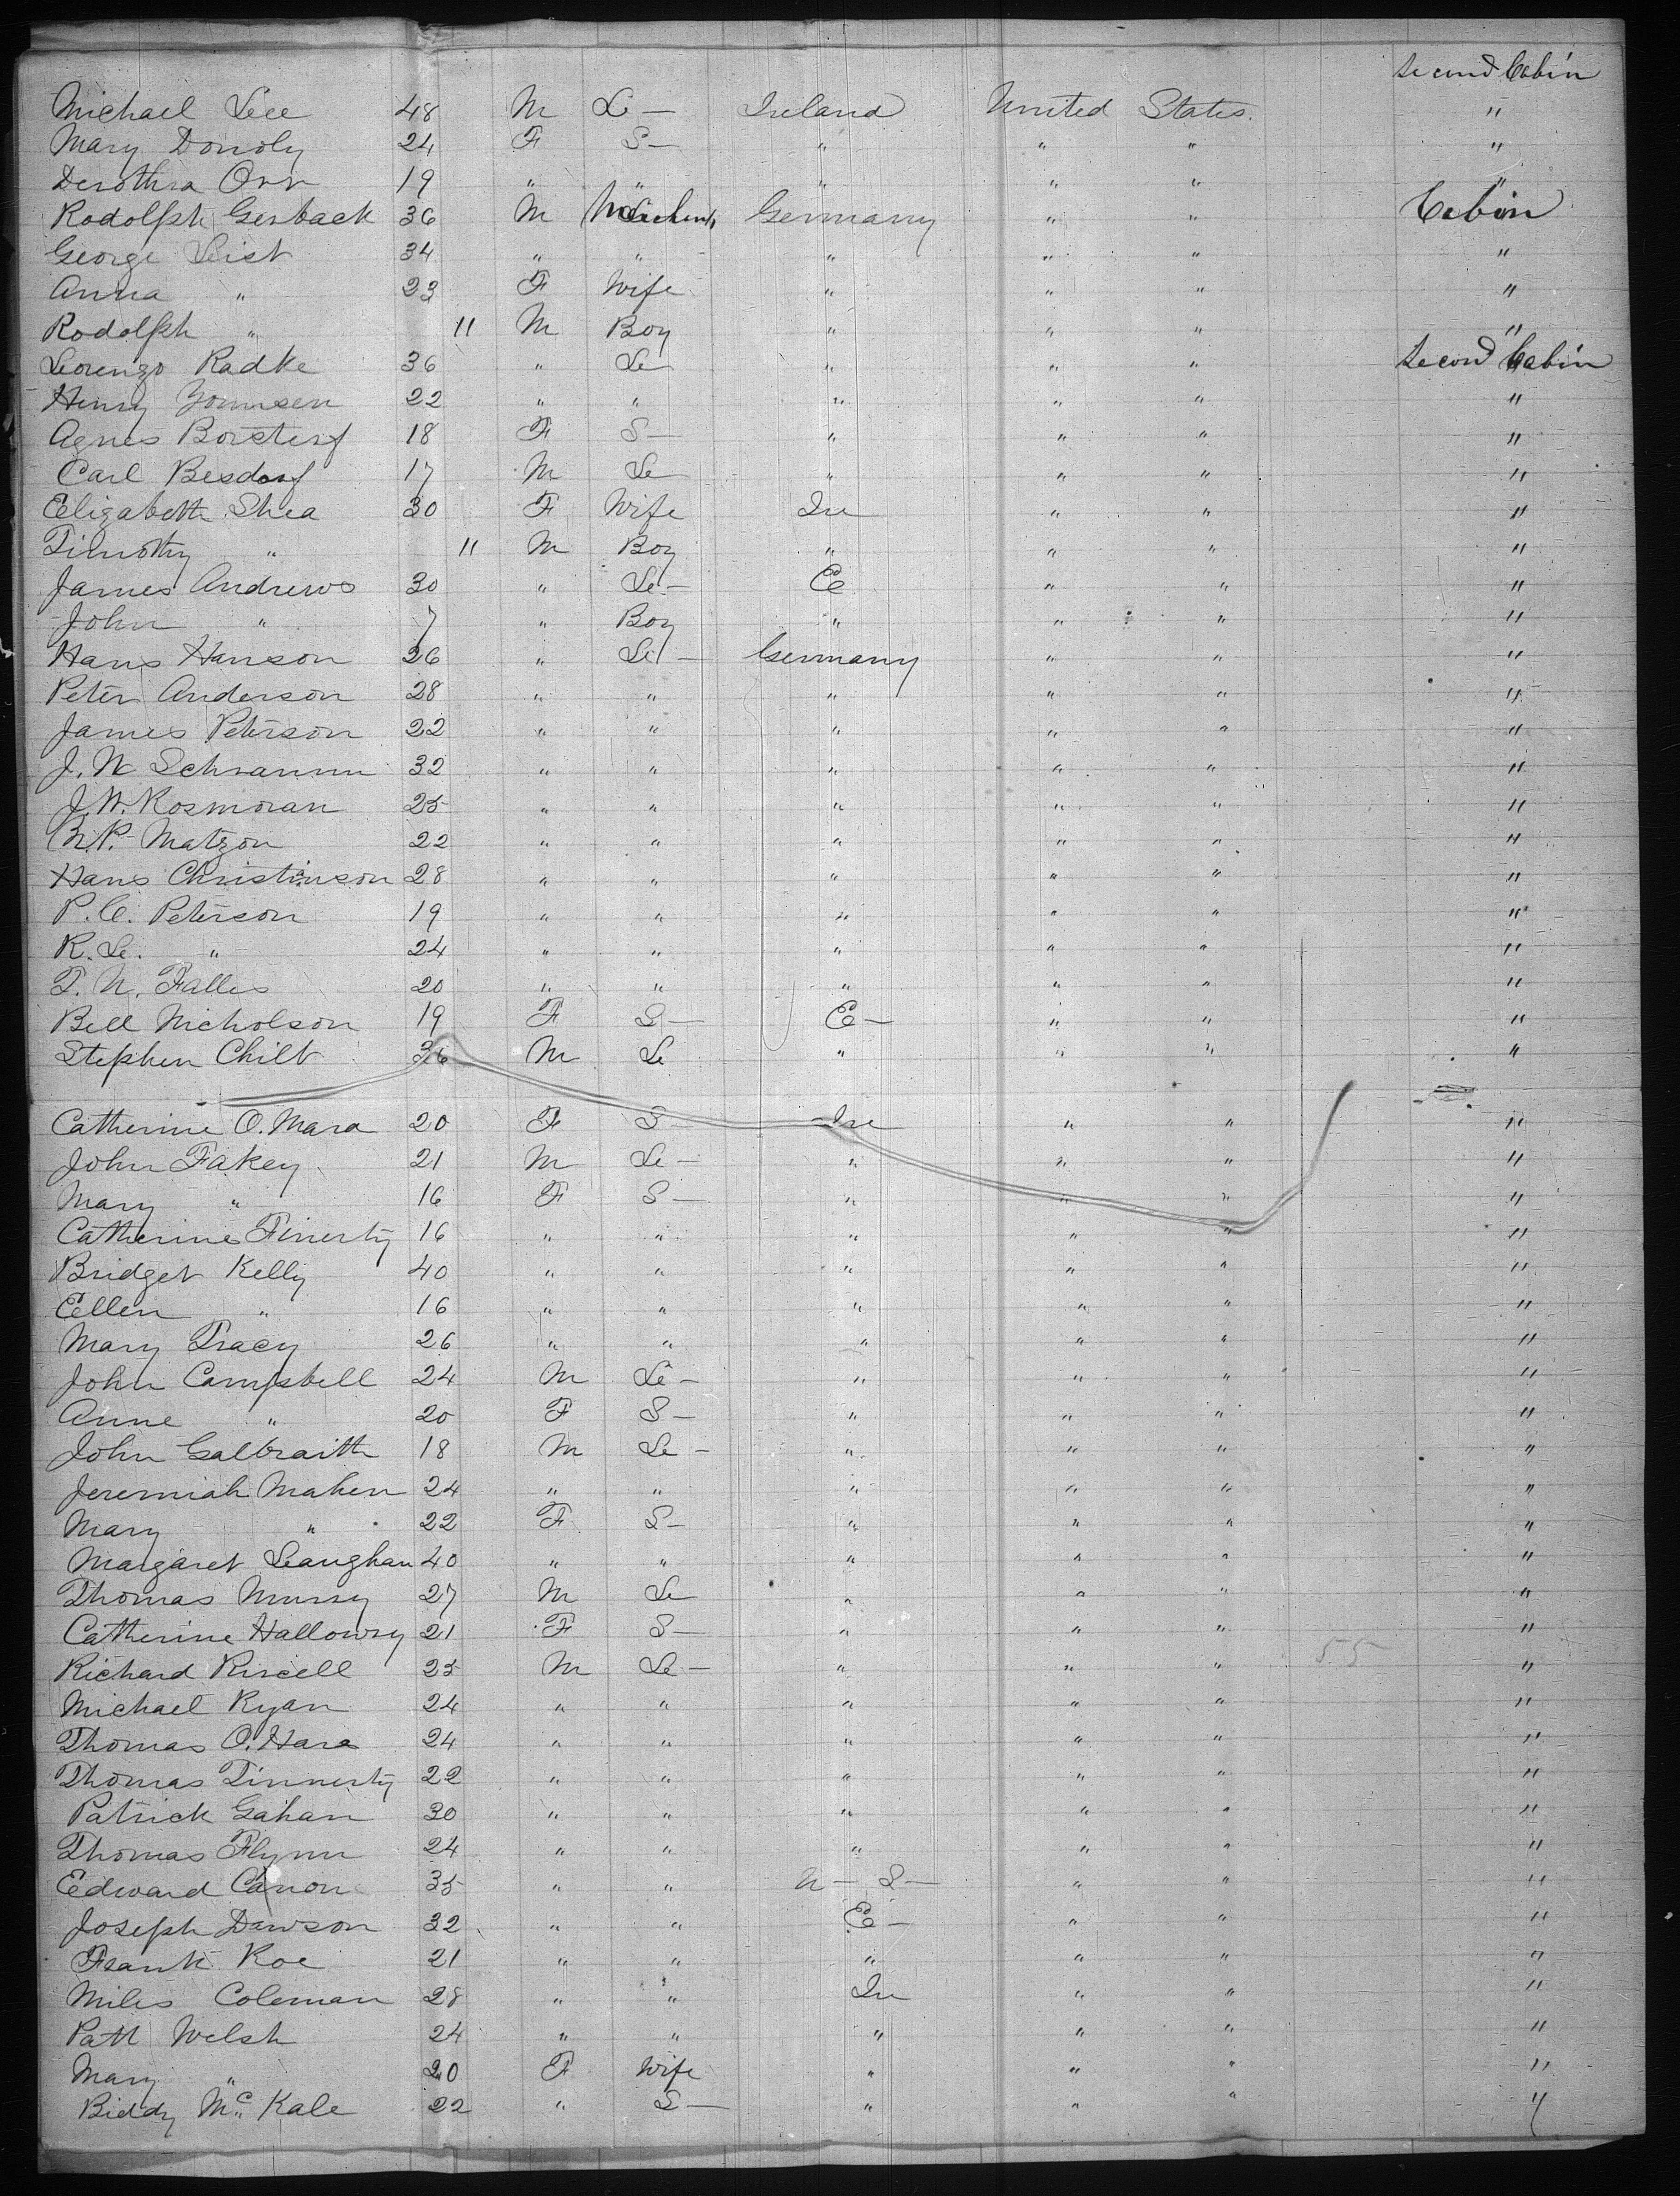 Second Cabin
Michael Lee 48 M L — Ireland United States. "
Mary Donoly 24 F S — " " " "
Derothra Orr 19 " " " " " "
Rodolph Gerback 36 M Germany " " Cabin
George Leist 34 " " " " " "
Anna " 23 F Wife " " " "
Rodolph " 11 M Boy " " " "
Lorenzo Radke 36 " La " " " Second Cabin
Henry 22 " " " " " "
Agnes 18 F S — " " " "
Carl Besdorf 17 M La " " " "
Elizabeth Shea 30 F Wife Ire " " "
Timothy " 11 M Boy " " " "
James Andrews 30 " La — E " " "
John " 7 " Boy " " " "
Hans Hanson 26 " La — Germany " " "
Peter Anderson 28 " " " " " "
James Peterson 22 " " " " " "
J. W Schramm 32 " " " " " "
J. W. Rosmoran 25 " " " " " "
N. P. Matzon 22 " " " " " "
Hans Christinson 28 " " " " " "
P. C. Peterson 19 " " " " " "
R. Le. " 24 " " " " " "
T. N. Falles 20 " " " " " "
Bell Nicholson 19 F S — E — " " "
Stephen Chilt 36 M La " " " "
Catherine O. Mara 20 F S — Ire " " "
John Fakey 21 M La — " " " "
Mary " 16 F S — " " " "
Catherine Finerty 16 " " " " " "
Bridget Kelly 40 " " " " " "
Ellen " 16 " " " " " "
Mary Tracy 26 " " " " " "
John Campbell 24 M La — " " " "
Anne " 20 F S — " " " "
John Galbraith 18 M La — " " " "
Jeremiah Mahen 24 " " " " " "
Mary " 22 F S — " " " "
Margaret Leaughan 40 " " " " " "
Thomas Murry 27 M La " " " "
Catherine Hallowry 21 F S — " " " "
Richard Riscell 25 M La — " " 55 "
Michael Ryan 24 " " " " " "
Thomas O. Hara 24 " " " " " "
Thomas Tinnerty 22 " " " " " "
Patrick Gahan 30 " " " " " "
Thomas Flynn 24 " " " " " "
Edward Canon 35 " " U — S — " " "
Joseph Dawson 32 " " E — " " "
Frank Roe 21 " " " " " "
Miles Coleman 28 " " Ire " " "
Patt Welsh 24 " " " " " "
Mary " 20 F Wife " " " "
Biddy Mc Kale 22 " S — " " " "